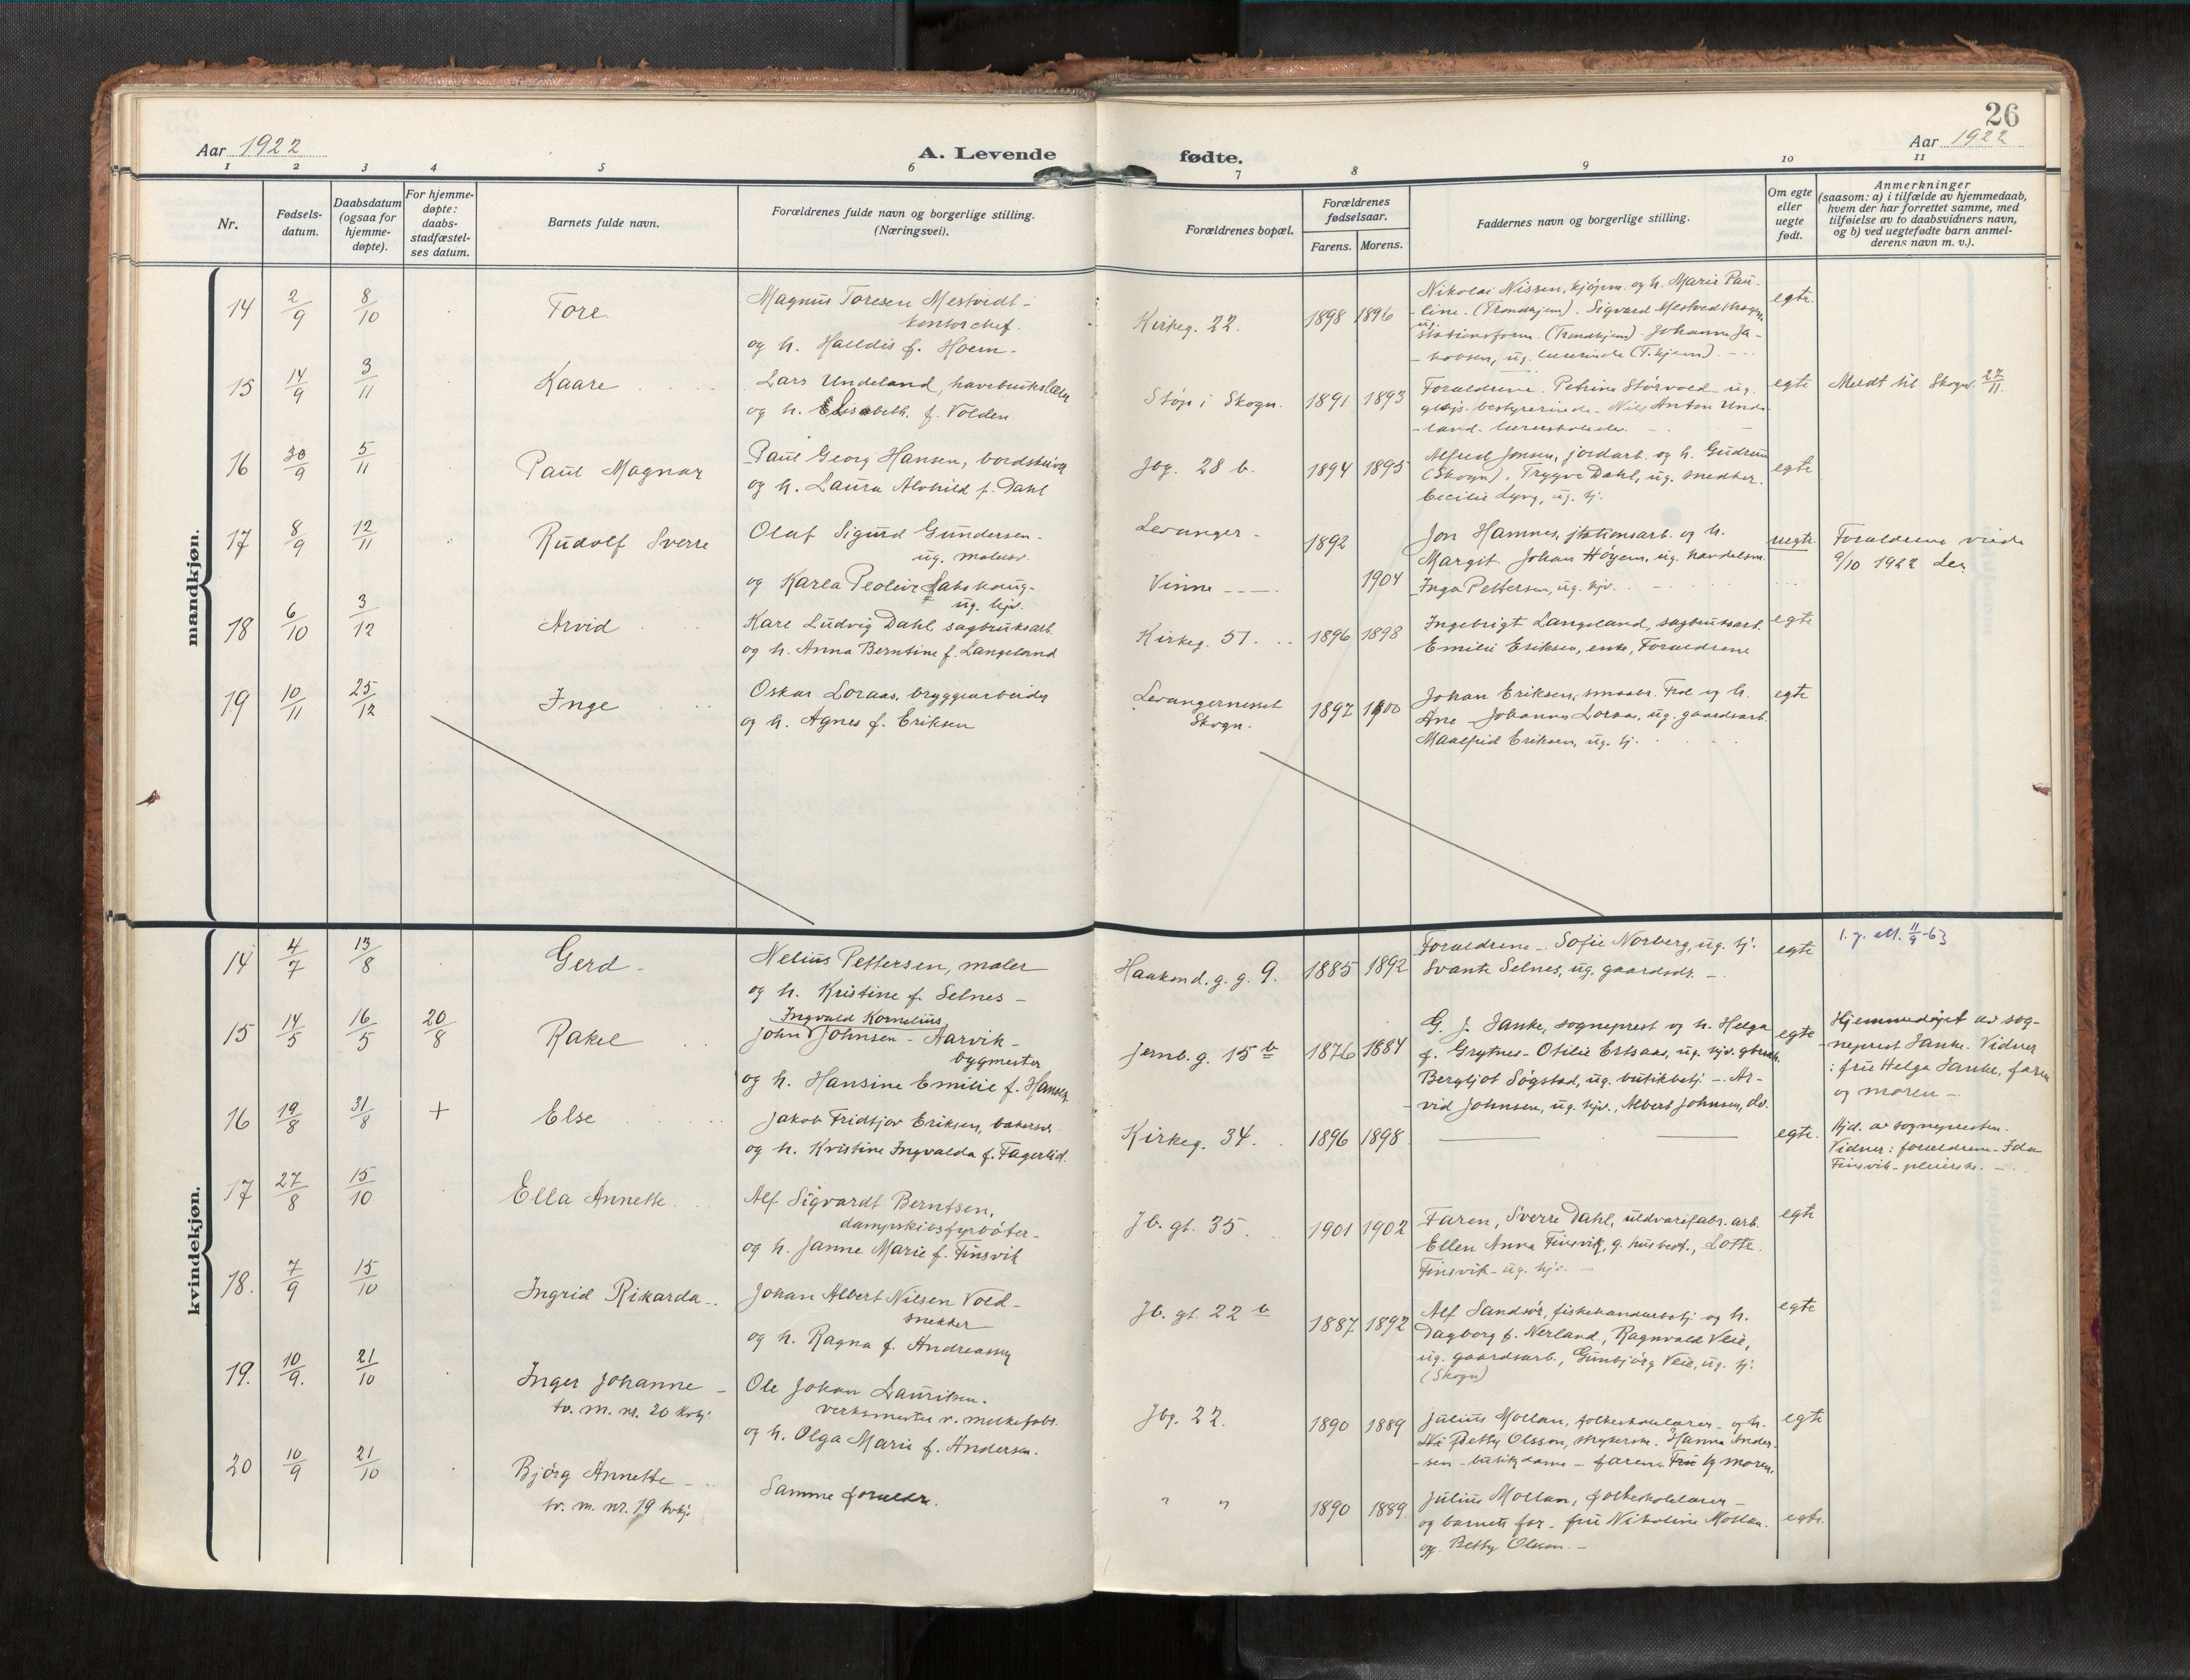 26
Aar 1922
A. Levende fødte.
Aar 1922
1 2 3 4 5 6 7 8 9 10 11
Nr.
Fødsels-
datum.
Daabsdatum
(ogsaa for
hjemme-
døpte).
For hjemme-
døpte:
daabs-
stadfæstel-
ses datum.
Barnets fulde navn.
Forældrenes fulde navn og borgerlige stilling.
(Næringsvei).
Forældrenes bopæl.
Forældrenes
fødselsaar.
Farens. Morens.
Faddernes navn og borgerlige stilling.
Om egte
eller
uegte
født.
Anmerkninger
(saasom: a) i tilfælde av hjemmedaab,
hvem der har forrettet samme, med
tilføielse av to daabsvidners navn,
og b) ved uegtefødte barn anmel-
derens navn m. v.).
mandkjøn.
14 2/9 8/10 Tore
Magnus Toresen Mestvedt -
kontorchef.
og h. Halldis f. Hoem -
Kirkeg. 22. 1898 1896
Nikolai Nissen, kjøpm. og h. Marie Pau-
- line. (Trondhjem). Sigvard
(Trondhjem). Johanna Ja-
- kobsen, ug. (T.hjem). -
egte
15 14/9 3/11 Kaare
Lars Undeland,
og h. Elisabeth f. Volden.
Støp i Skogn. 1891 1893
Forældrene. Petrina Størvold - ug.
bestyrerinde - Nils Anton Unde-
- land -
egte
Meldt til Skogn 27/11
16 30/9 5/11 Paul Magnar
Paul Georg Hansen,
og h. Laura Alvhild f. Dahl
Jbg. 28 b. 1894 1895
Alfred Jonsen, jordarb. og h. Gudrun
(Skogn). Trygve Dahl, ug. snedker.
Cecilie Lyng, ug. tj.
egte
17 8/9 12/11 Rudolf Sverre
Olaf Sigurd Gundersen -
ug. malersv.
og Karla
ug. hjv.
Levanger - 1892
Vinne 1904
Jon Hamnes, stationsarb. og h.
Margit. Johan Høyem, ug. handelsm.
Inga Pettersen, ug. hjv.
uegte
Forældrene viede
9/10 1922 Lev.
18 6/10 3/12 Arvid
Karl Ludvig Dahl, sagbruksarb.
og h. Anna Berntine f. Langeland
Kirkeg. 51. 1896 1898
Ingebrigt Langeland, sagbruksarb.
Emilie Eriksen, enke, Forældrene
egte
19 10/11 25/12 Inge
Oskar Loraas, bryggearbeider
og h. Agnes f. Eriksen
Levangernesset
Skogn. 1897 1900
Johan Eriksen, smaabr. Frol og h.
Ane - Johannes Loraas, ug. gaardsarb.
Maalfrid Eriksen, ug. tj.
egte
kvindekjøn.
14 4/7 13/8 Gerd -
Nelius Pettersen, maler
og h. Kristine f. Selnes -
Haakon d. g. g. 9. 1885 1892
Forældrene - Sofie Norberg, ug. tj.
Svante Selnes, ug. gaardsdr. -
egte
l. g. att. 11/9-63
15 14/5 16/5 20/8 Rakel
Ingvald Kornelius
John Johnsen - Aarvik -
bygmester
og h. Hansine Emilie f. Hansen
Jernb. g. 15 b 1876 1884
G. J. Janke, sogneprest og h. Helga
f. Grytnes - Otilie Ertsaas, ug. hjv.
Bergljot Søgstad, ug. butikbetj. - Ar-
- vid Johnsen, ug. hjv., Albert Johnsen, do.
egte
Hjemmedøpt av sog-
- neprest Janke. Vidner
: fru Helga Janke, faren
og moren -
16 19/8 31/8 + Else
Jakob Fridtjov Eriksen, bakersv.
og h. Kristine Ingvalda f. Fagerlid.
Kirkeg. 34. 1896 1898
egte.
Hjd. av sognepresten.
Vidner: forældrene - Ida
Finsvik -
17 27/8 15/10 Ella Annette
Alf Sigvardt Berntsen,
dampskibsfyrbøter -
og h. Janne Marie f. Finsvik
Jb. gt. 35. 1901 1902
Faren, Sverre Dahl, uldvarefabr. arb.
Ellen Anna Finsvik, g. husbest., Lotte
Finsvik - ug. hjv. -
egte
18. 7/9 15/10 Ingrid Rikarda -
Johan Albert Nilsen Vold -
snekker
og h. Ragna f. Andreassen
Jb. gt. 22 b 1887 1892
Alf Sandsør, og h.
Dagborg f. Nerland, Ragnvald Veie,
ug. gaardsarb., Gunbjørg Veie, ug. tj.
(Skogn)
egte
19. 10/9. 21/10 Inger Johanne -
tv. m. nr. 20 kvkj.
Ole Johan Lauritsen.
verksmester v. melkefabr.
og h. Olga Marie f. Andersen.
Jbg. 22. 1890 1889
Julius Mollan, folkeskolelærer - og h.
Betty Olsson, strykerske. Hanna Ander-
- sen - butikdame - faren og moren.
egte
20 10/9 21/10 Bjørg Annette -
tv. m. nr. 19 kvkj.
Samme forældre.
" " 1890 1889
Julius Mollan, folkeskolelærer -
og barnets far - fru Nikoline Mollan.
og Betty Olsson. -
egte.